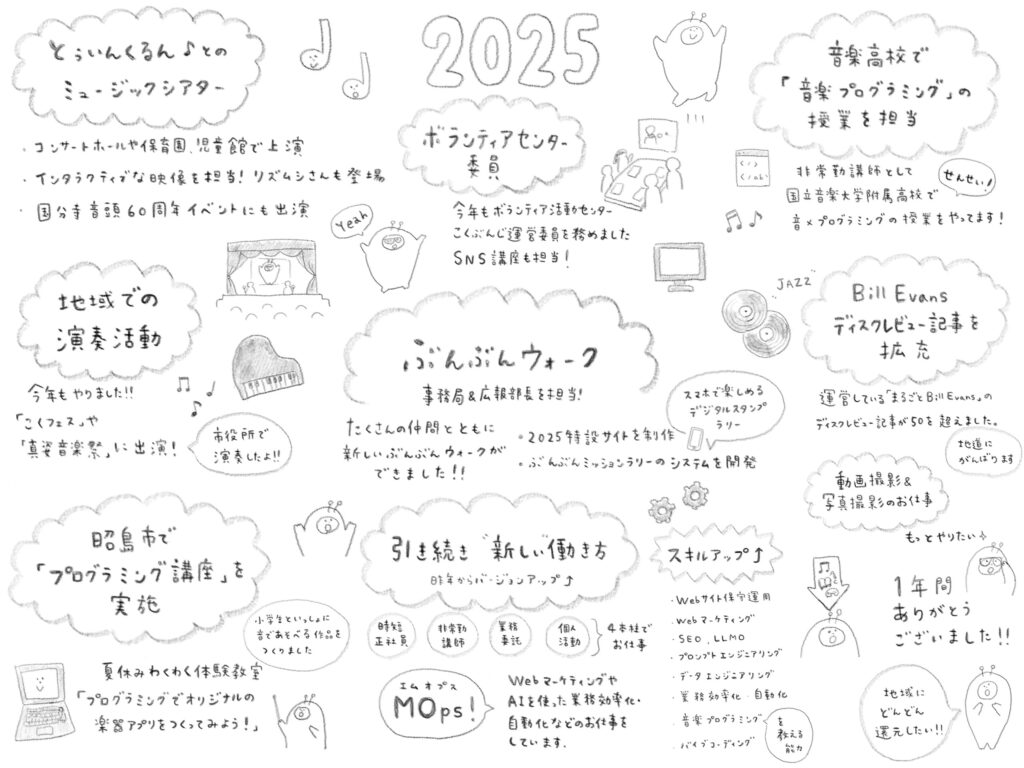 2025
とぅいんくるん♪との
ミュージックシアター
・コンサートホールや保育園、児童館で上演
・インタラクティブな映像を担当！リズムシさんも登場
・国分寺音頭60周年イベントにも出演
ボランティアセンター
委員
今年もボランティア活動センター
こくぶんじ運営委員を務めました
SNS講座も担当！
音楽高校で
「音楽プログラミング」の
授業を担当
非常勤講師として
国立音楽大学附属高校で
音×プログラミングの授業をやってます！
せんせい！
</>
Yeah
地域での
演奏活動
今年もやりました!!
「こくフェス」や
「真姿音楽祭」に出演！
市役所で
演奏したよ!!
ぶんぶんウォーク
事務局&広報部長を担当！
たくさんの仲間とともに
新しいぶんぶんウォークが
できました!!
・2025特設サイトを制作
・ぶんぶんミッションラリーのシステムを開発
スマホで楽しめる
デジタルスタンプ
ラリー
JAZZ
Bill Evans
ディスクレビュー記事を
拡充
運営している「まるごとBill Evans」の
ディスクレビュー記事が50を超えました。
地道に
がんばります
動画撮影&
写真撮影のお仕事
もっとやりたい
昭島市で
「プログラミング講座」を
実施
小学生といっしょに
音であそべる作品を
つくりました
夏休みわくわく体験教室
「プログラミングでオリジナルの
楽器アプリをつくってみよう！」
引き続き“新しい働き方
昨年からバージョンアップ↑
時短
正社員
非常勤
講師
業務
委託
個人
活動
4本社で
お仕事
エムオプス
MOps!
Webマーケティングや
AIを使った業務効率化・
自動化などのお仕事を
しています.
スキルアップ↑
・Webサイト保守運用
・Webマーケティング
・SEO、LLMO
・プロンプトエンジニアリング
・データエンジニアリング
・業務効率化・自動化
・音楽プログラミング
を
教える
能力
・バイブコーディング
1年間
ありがとう
ございました!!
地域に
どんどん
還元したい!!